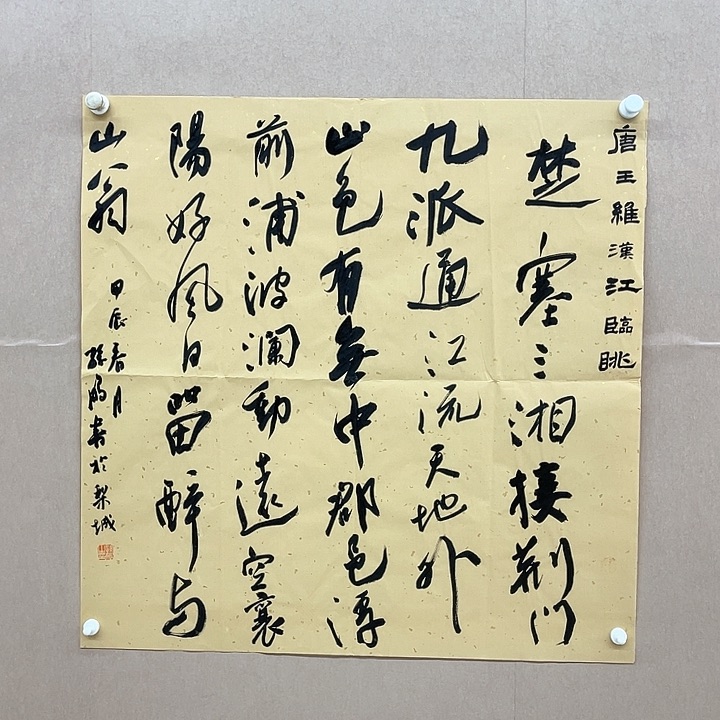 唐王維漢江臨眺
楚塞三湘接荆門
九派通江流天地外
山色有無中郡邑浮
前浦波瀾動遠空襄
陽好風日留醉与
山翁
甲辰春月
書於梨城